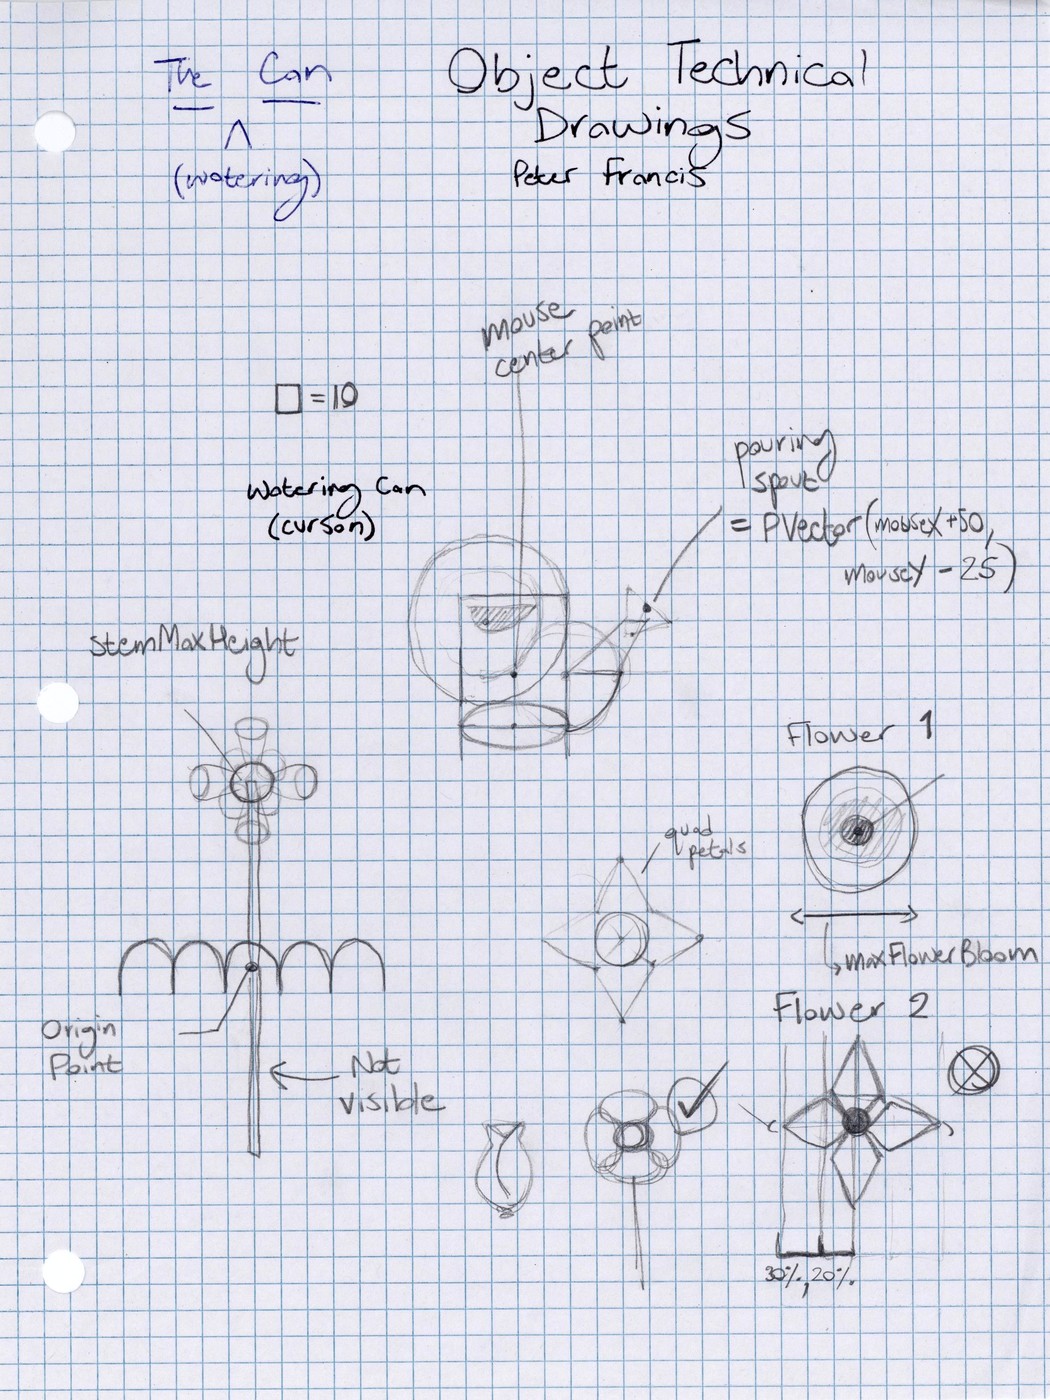 The Can
^
(watering)
Object Technical
Drawings
Peter Francis
mouse
center point
□ = 10
Watering Can
(cursor)
pouring
spout
= PVector(mouseX +50,
mouseY - 25)
stemMaxHeight
Flower 1
quad
petals
maxFlowerBloom
Flower 2
Origin
Point
Not
visible
30%, 20%